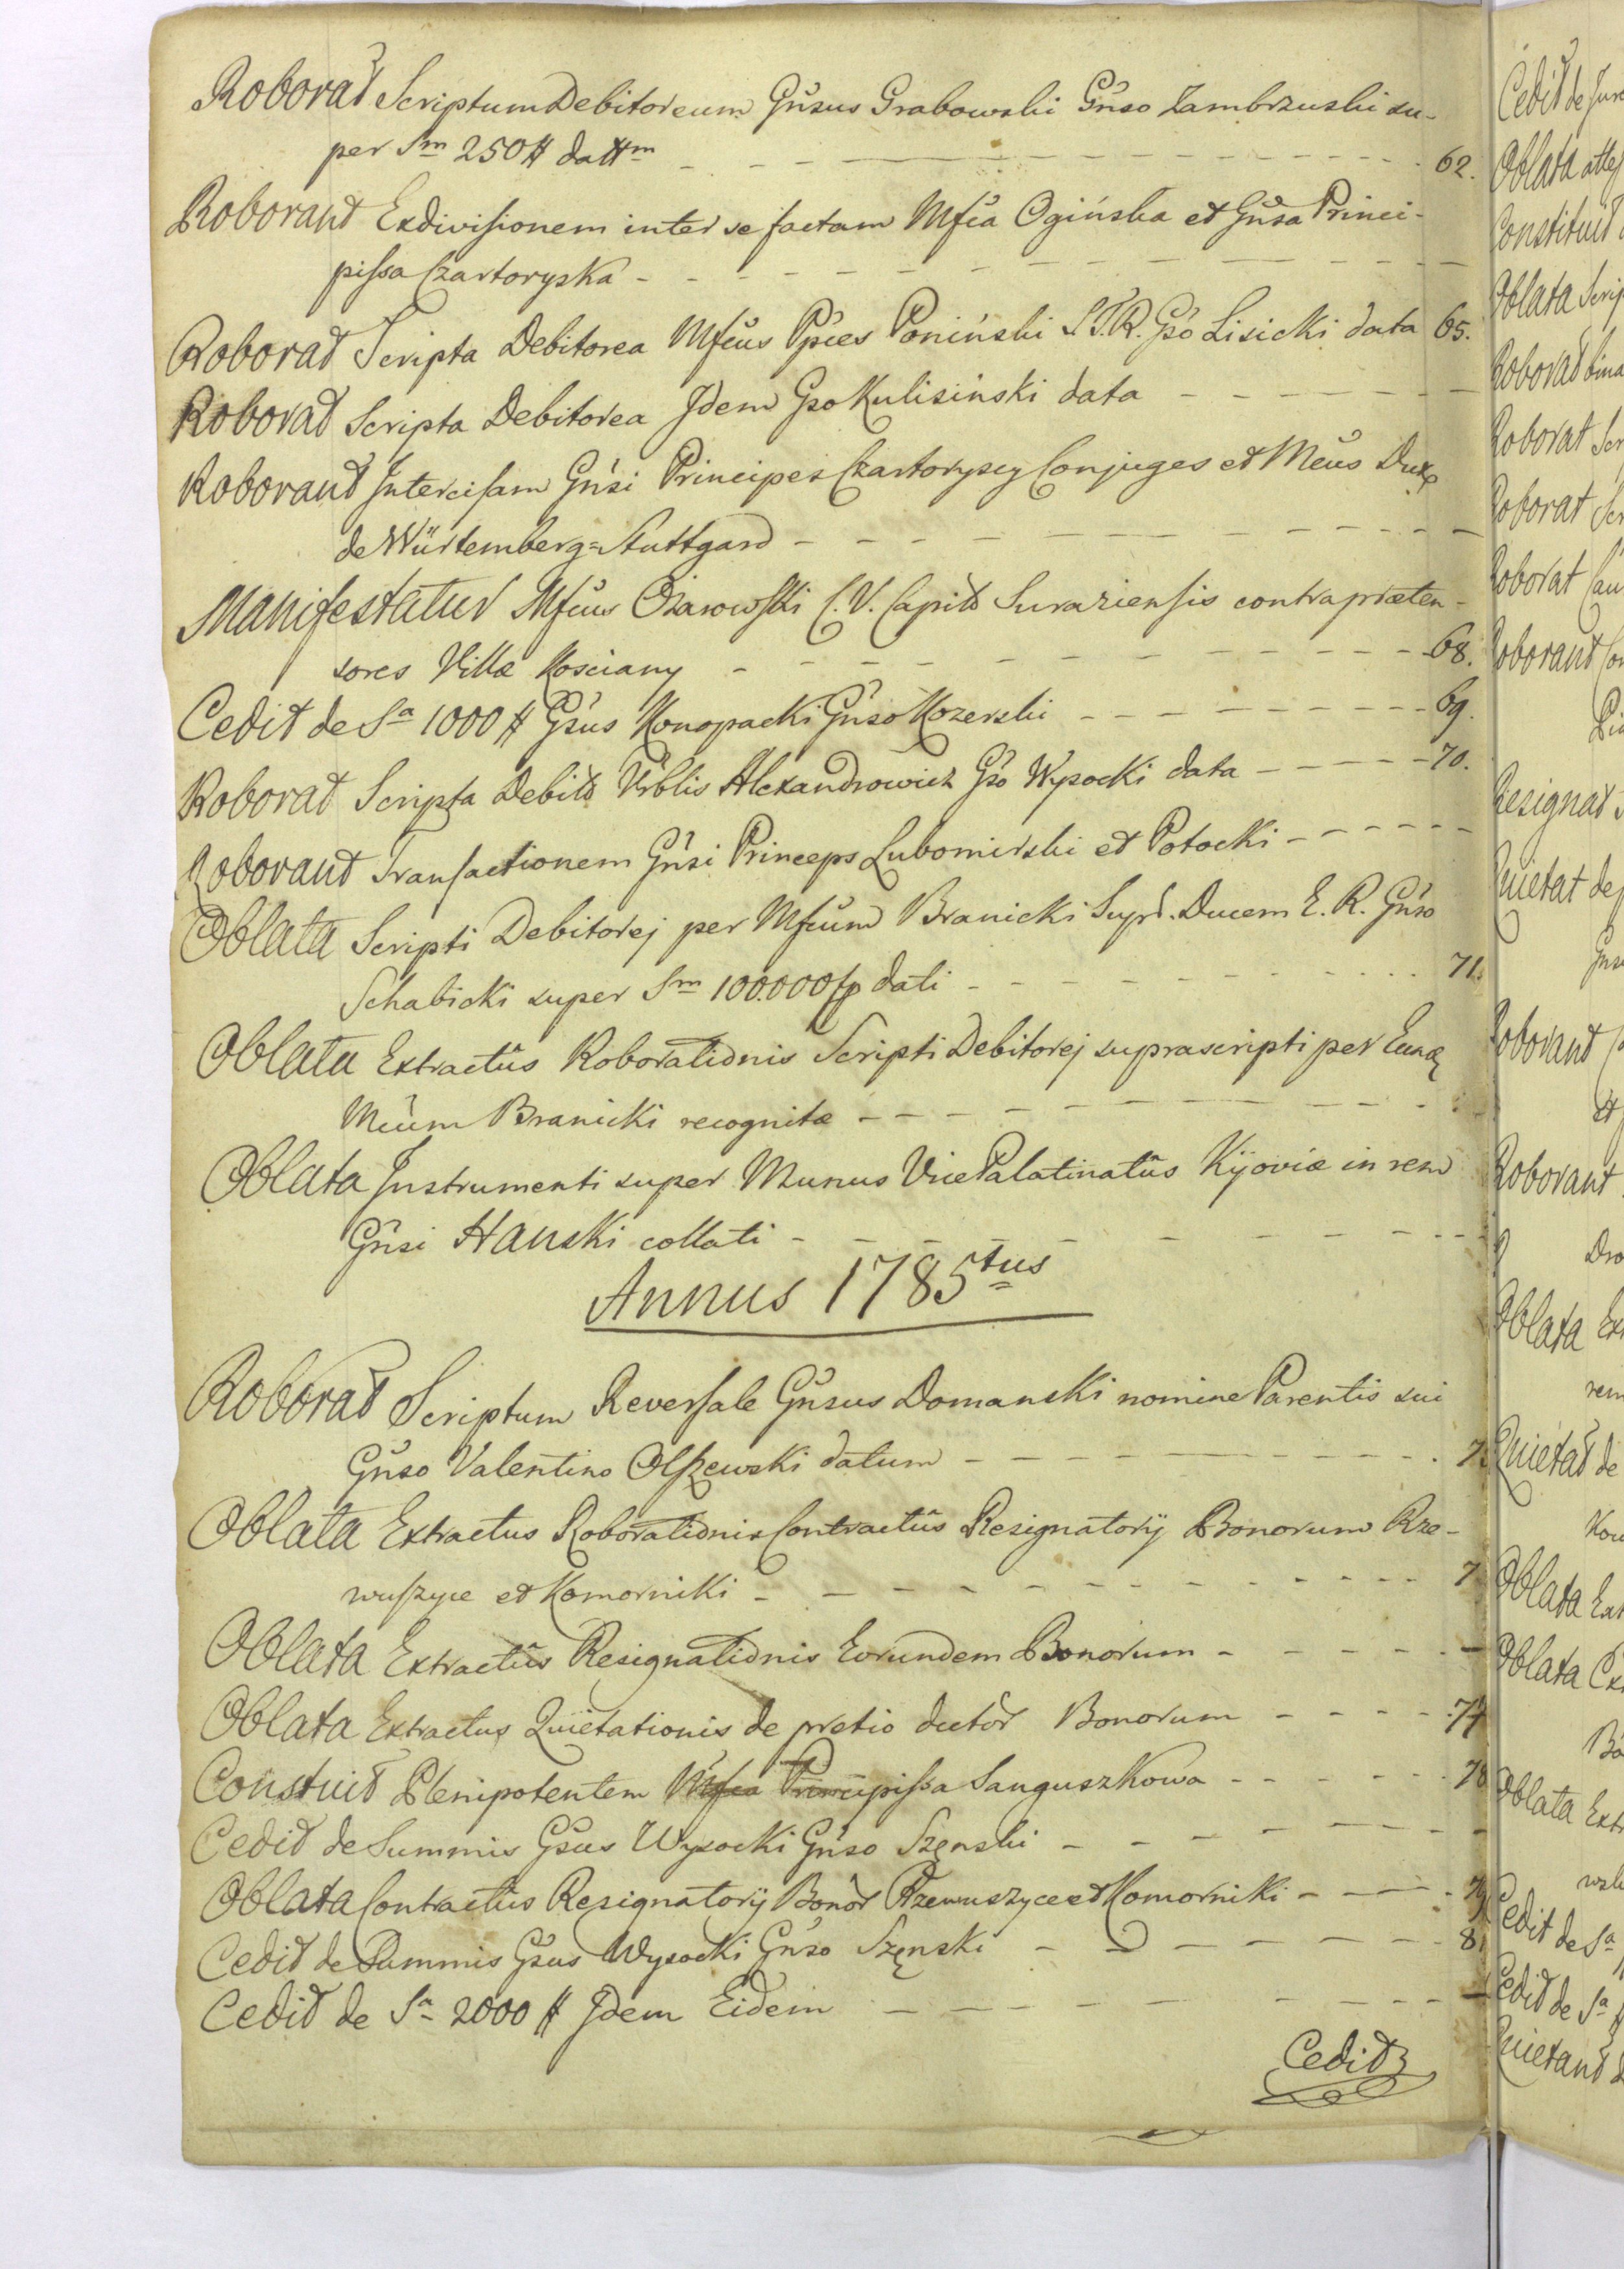 Roborat Scriptum Debitoreum Gnsus Grabowski Gnso Zambrzuski su-
per Sm 250 # dattm 62.
Roborant Exdivisionem inter se factam Mfca Ogińska et Gnsa Princi-
pissa Czartoryska
Roborat Scripta Debitorea Mfcus Ppces Poniński S.T.R. Gso Lisicki data 65.
Roborat Scripta Debitorea Idem Gso Kulisiński data
Roborant Intercisam Gnsi Principes Czartoryscy Conjuges et Mcus Dux
de Würtemberg=Stuttgard
Manifestatur Mfcus Ożarowski C. V. Capito Suraziensis contra præten-
sores Villæ Kościany 68.
Cedit de Sa 1000 # Gsus Konopacki Gnso Kozerski 69.
Roborat Scripta Debito Vrblis Alexandrowicz Gso Wysocki data 70.
Roborant Transactionem Gnsi Princeps Lubomirski et Potocki
Oblata Scripti Debitorej per Mfcum Branicki Supr. Ducem E. R. Gnso
Schabicki super Sm 100.000 fp dati 71.
Oblata Extractûs Roborationis Scripti Debitorej suprascripti per Eund
Mcum Branicki recognitæ
Oblata Instrumenti super Munus VicePalatinatûs Kijoviæ in rem
Gnsi Hański collati
Annus 1785tus
Roborat Scriptum Reversale Gnsus Domanski nomine Parentis sui
Gnso Valentino Olszewski datum 7
Oblata Extractus Roborationis Contractûs Resignatorij Bonorum Rze-
wuszyce et Komorniki 7
Oblata Extractûs Resignationis Eorundem Bonorum
Oblata Extractus Quietationis de pretio dictor Bonorum 77
Constuit Plenipotentem Mfca Principissa Sanguszkowa 78
Cedit de Summis Gsus Wysocki Gnso Szęnski
Oblata Contractûs Resignatorij Bonor Rzewuszyce et Komorniki 79
Cedit de Summis Gsus Wysocki Gnso Szęnski 81
Cedit de Sa 2000 # Idem Eidem
Cedit
Cedit de Jure
Oblata
Constituit
Oblata Scrip
Roborat bina
Roborat Scr
Roborat Scr
Roborat Cau
Roborant
Resignat
Quietat de
Roborant
et
Roborant
Oblata Ex
rem
Quietat de
Oblata Ext
Oblata Ex
Bo
Oblata Ext
Cedit de Sa
Cedit de Sa
Quietant